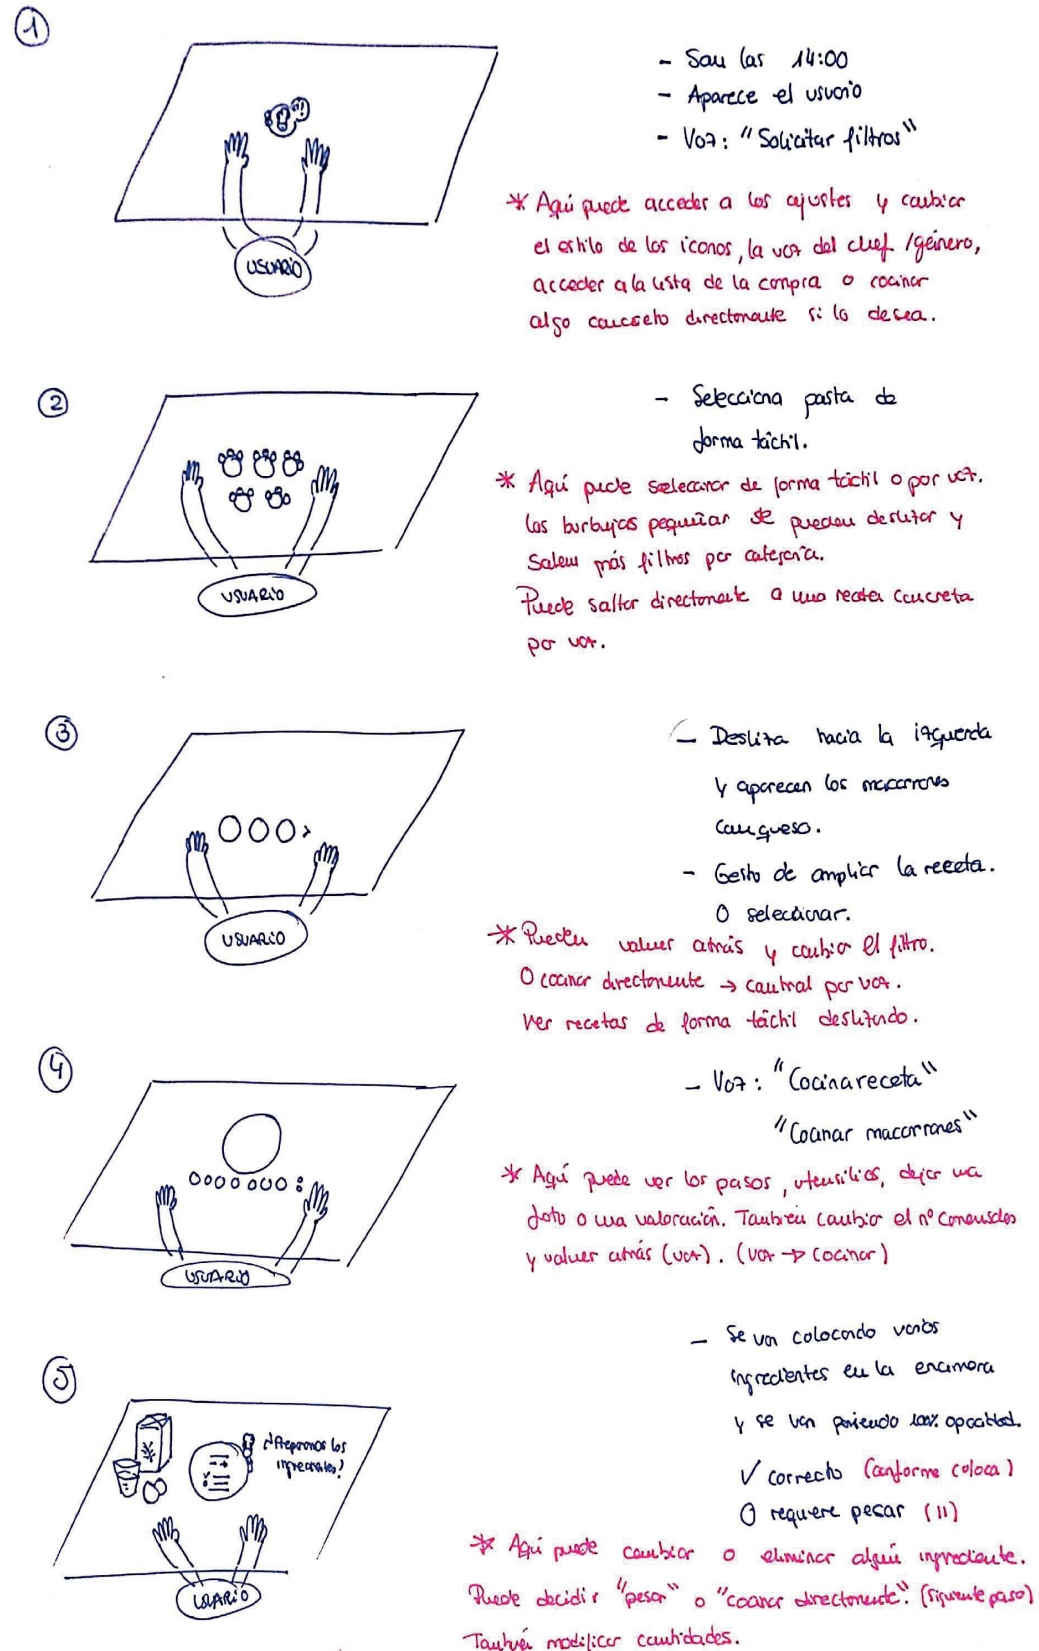 1
- Son las 14:00
- Aparece el usuario
- Voz: "Solicitar filtros"
* Aquí puede acceder a los ajustes y cambiar
el estilo de los iconos, la voz del chef/género,
acceder a la lista de la compra o cocinar
algo concreto directamente si lo desea.
USUARIO
2
- Selecciona pasta de
forma táctil.
* Aquí puede seleccionar de forma táctil o por voz.
Las burbujas pequeñas se pueden deslizar y
salen más filtros por categoría.
Puede saltar directamente a una receta concreta
por voz.
USUARIO
3
- Desliza hacia la izquierda
y aparecen los macarrones
con queso.
- Gesto de ampliar la receta.
O seleccionar.
* Pueden volver atrás y cambiar el filtro.
O cocinar directamente → control por voz.
Ver recetas de forma táctil deslizando.
USUARIO
4
- Voz: "Cocina receta"
"Cocinar macarrones"
* Aquí puede ver los pasos, utensilios, dejar una
foto o una valoración. También cambiar el nº comensales
y volver atrás (voz). (voz → cocinar)
USUARIO
5
- Se van colocando varios
ingredientes en la encimera
y se van poniendo 100% opacidad.
✓ correcto (conforme coloca)
O requiere pesar (11)
¿Preparamos los
ingredientes?
* Aquí puede cambiar o eliminar algún ingrediente.
Puede decidir "pesar" o "cocinar directamente". (siguiente paso)
También modificar cantidades.
USUARIO